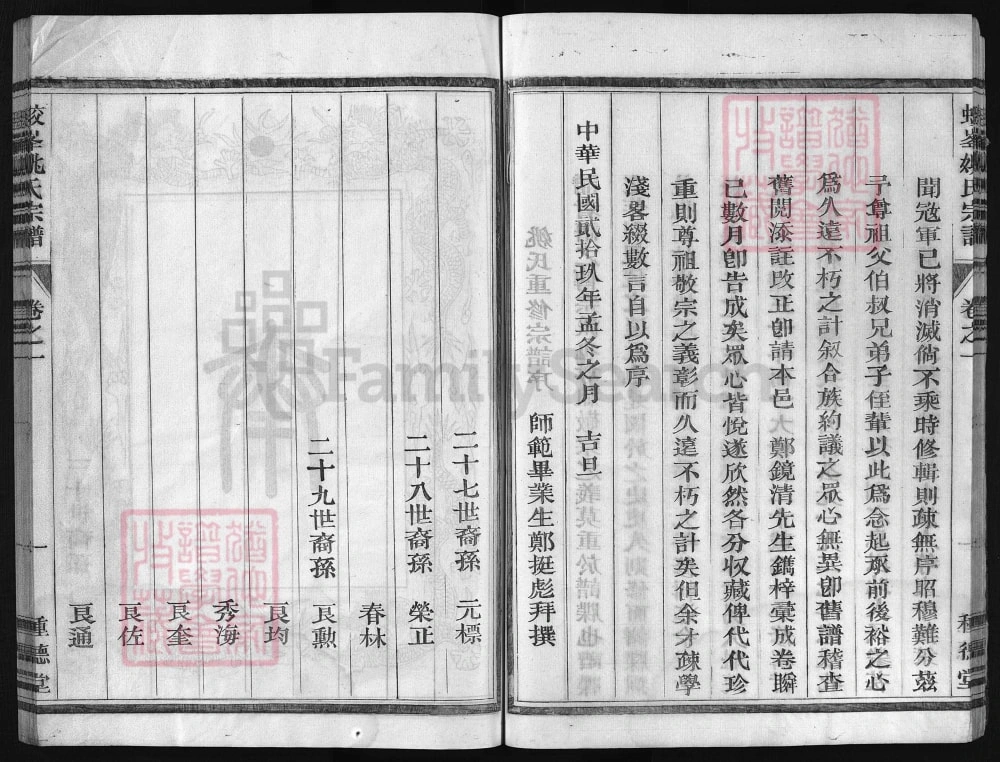 聞寇軍已將消滅倘不乘時修輯則疎無序昭穆難分兹
予尊祖父伯叔兄弟子侄輩以此為念起承前後裕之心
為久遠不朽之計叙合族約議之眾心無異卽舊譜稽查
舊閱添註改正卽請本邑大鄭鏡清先生鐫梓彙成卷瞬
已數月卽告成矣眾心皆悅遂欣然各分収藏俾代代珍
重則尊祖敬宗之義彰而久遠不朽之計矣但余才疎學
淺畧綴數言自以為序
中華民國貳拾玖年孟冬之月 吉旦
師範畢業生鄭挺彪拜撰
二十七世裔孫 元標
二十八世裔孫 榮正
春林
二十九世裔孫 艮勲
艮均
秀海
艮奎
艮佐
艮通
姚氏宗譜 卷之一 一
FamilySearch